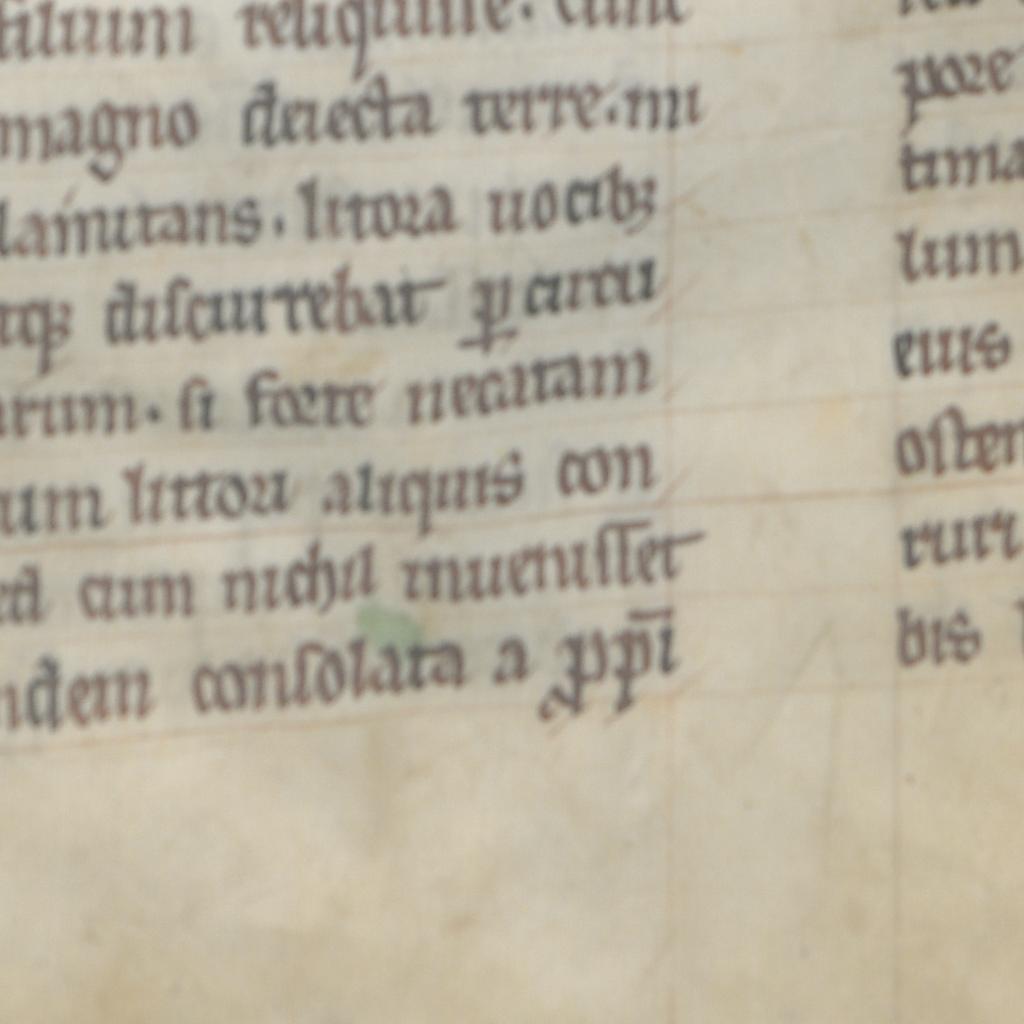 filium reliquisse. cunc
magno deiecta terre. mi
lamitans. litora uocibꝫ
qꝫ discurrebat ꝑ circu
arum. si forte necatam
um littori aliquis con
ed cum nichil inuenisset
ndem consolata a ꝓpī
pore
tima
lum
eius
osten
rurr
bis